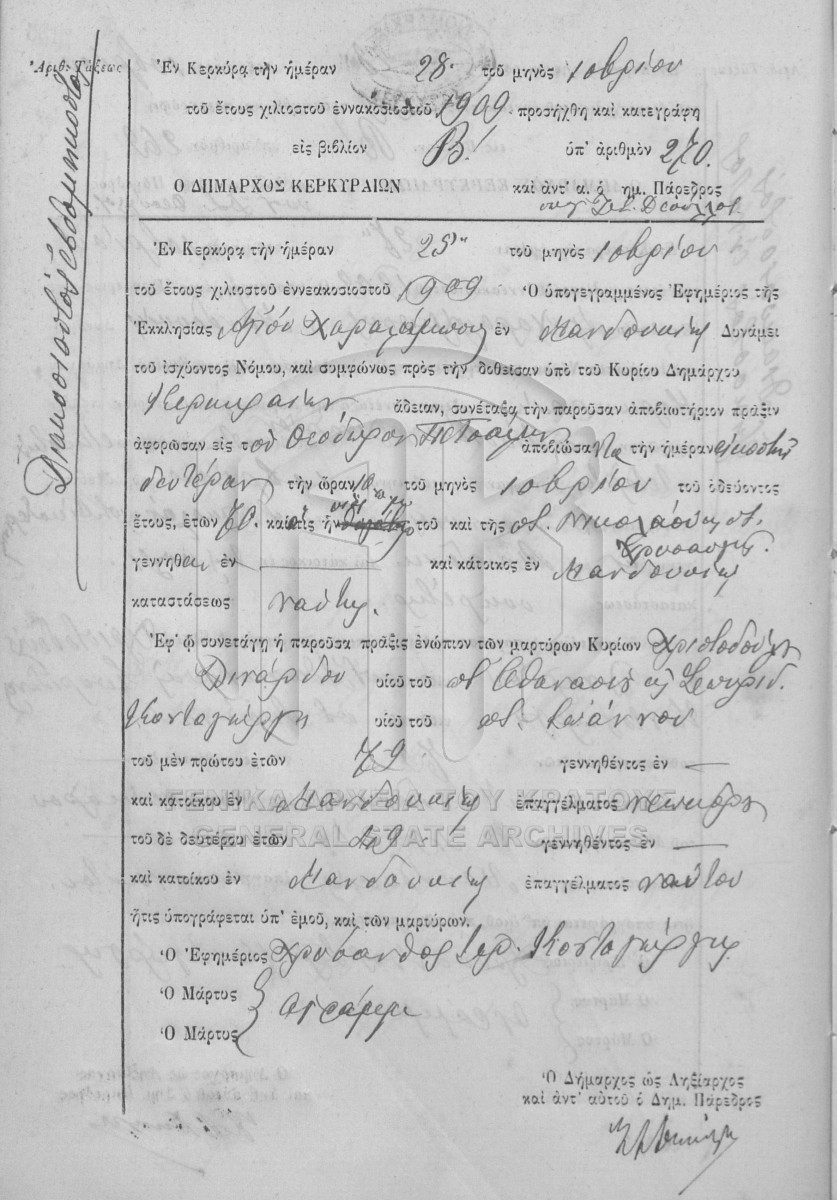 Ἀριθ. Τάξεως
Διακοσιοστὸς ἑβδομηκοστὸς
Ἐν Κερκύρᾳ τὴν ἡμέραν 28. τοῦ μηνὸς 10βρίου
τοῦ ἔτους χιλιοστοῦ ἐννακοσιοστοῦ 1909 προσήχθη καὶ κατεγράφη
εἰς βιβλίον Β! ὑπ' ἀριθμὸν 270.
Ο ΔΗΜΑΡΧΟΣ ΚΕΡΚΥΡΑΙΩΝ καὶ ἀντ' α. ὁ δημ. Πάρεδρος
Ἐν Κερκύρᾳ τὴν ἡμέραν 25 τοῦ μηνὸς 10βρίου
τοῦ ἔτους χιλιοστοῦ ἐννεακοσιοστοῦ 1909 Ὁ ὑπογεγραμμένος Ἐφημέριος τῆς
Ἐκκλησίας Ἁγίου Χαραλάμπους ἐν Μανδουκίῳ Δυνάμει
τοῦ ἰσχύοντος Νόμου, καὶ συμφώνως πρὸς τὴν δοθεῖσαν ὑπὸ τοῦ Κυρίου Δημάρχου
Κερκυραίων ἄδειαν, συνέταξα τὴν παροῦσαν ἀποβιωτήριον πρᾶξιν
ἀφορῶσαν εἰς τὸν Θεόδωρον ἀποβιώσαντα τὴν ἡμέραν εἰκοστὴν
δευτέραν τὴν ὥραν 10 τοῦ μηνὸς 10βρίου τοῦ ὁδεύοντος
ἔτους, ἐτῶν τοῦ καὶ τῆς Νικολάου
Χρυσαυγῆς.
γεννηθεὶς ἐν — καὶ κάτοικος ἐν Μανδουκίῳ
καταστάσεως ναύτης.
Ἐφ' ᾧ συνετάγη ἡ παροῦσα πρᾶξις ἐνώπιον τῶν μαρτύρων Κυρίων Χριστοδούλου
Διμάρδου υἱοῦ τοῦ π. Ἀθανασίου κ Σπυρίδ.
Κονταγιώργη υἱοῦ τοῦ π. Ἰωάννου
τοῦ μὲν πρώτου ἐτῶν 72 γεννηθέντος ἐν —
καὶ κατοίκου ἐν Μανδουκίῳ ἐπαγγέλματος
τοῦ δὲ δευτέρου ἐτῶν 49 γεννηθέντος ἐν —
καὶ κατοίκου ἐν Μανδουκίῳ ἐπαγγέλματος ναύτου
ἥτις ὑπογράφεται ὑπ' ἐμοῦ, καὶ τῶν μαρτύρων.
Ὁ Ἐφημέριος Χρύσανθος Ἱερ. Κονταγιώργης
Ὁ Μάρτυς
Ὁ Μάρτυς
ἀγράμμ.
Ὁ Δήμαρχος ὡς Ληξίαρχος
καὶ ἀντ' αὐτοῦ ὁ Δημ. Πάρεδρος
ΓΕΝΙΚΑ ΑΡΧΕΙΑ ΤΟΥ ΚΡΑΤΟΥΣ
GENERAL STATE ARCHIVES